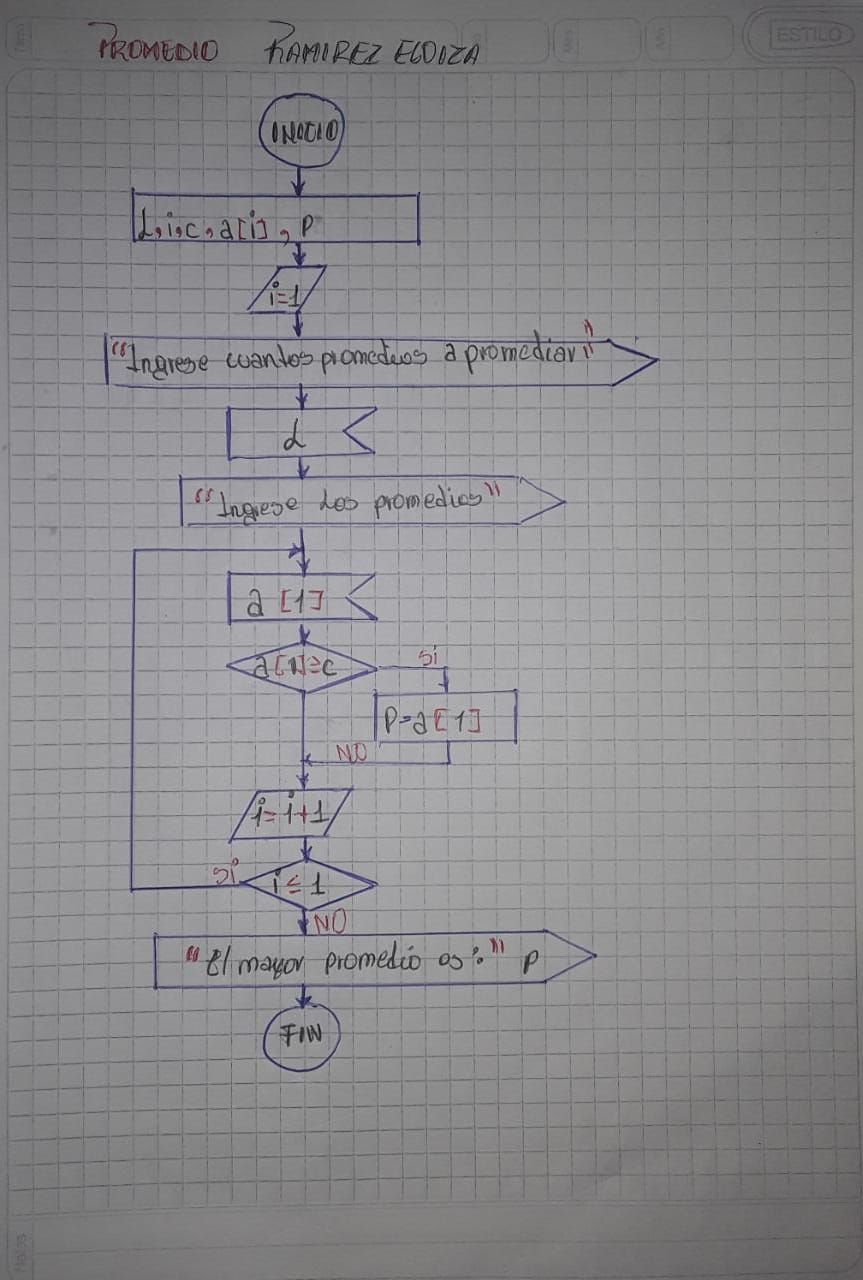 PROMEDIO RAMIREZ ELOIZA
ESTILO
INICIO
L, i, c, a[i], P
i=1
"Ingrese cuantos promedios a promediar"
L
"Ingrese Los promedios"
a [1]
a[1]≥c
Si
P=a[1]
NO
i=i+1
Si
i≤1
NO
"El mayor promedio es:" P
FIN